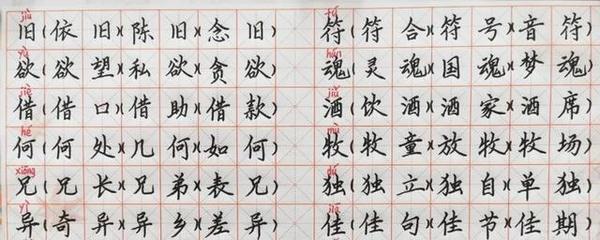 jiù fú
旧(依旧)(陈旧)(念旧) 符(符合)(符号)(音符)
yù hún
欲(欲望)(私欲)(贪欲) 魂(灵魂)(国魂)(梦魂)
jiè jiǔ
借(借口)(借助)(借款) 酒(饮酒)(酒家)(酒席)
hé mù
何(何处)(几何)(如何) 牧(牧童)(放牧)(牧场)
xiōng dú
兄(兄长)(兄弟)(表兄) 独(独立)(独自)(单独)
yì jiā
异(奇异)(异乡)(差异) 佳(佳句)(佳节)(佳期)